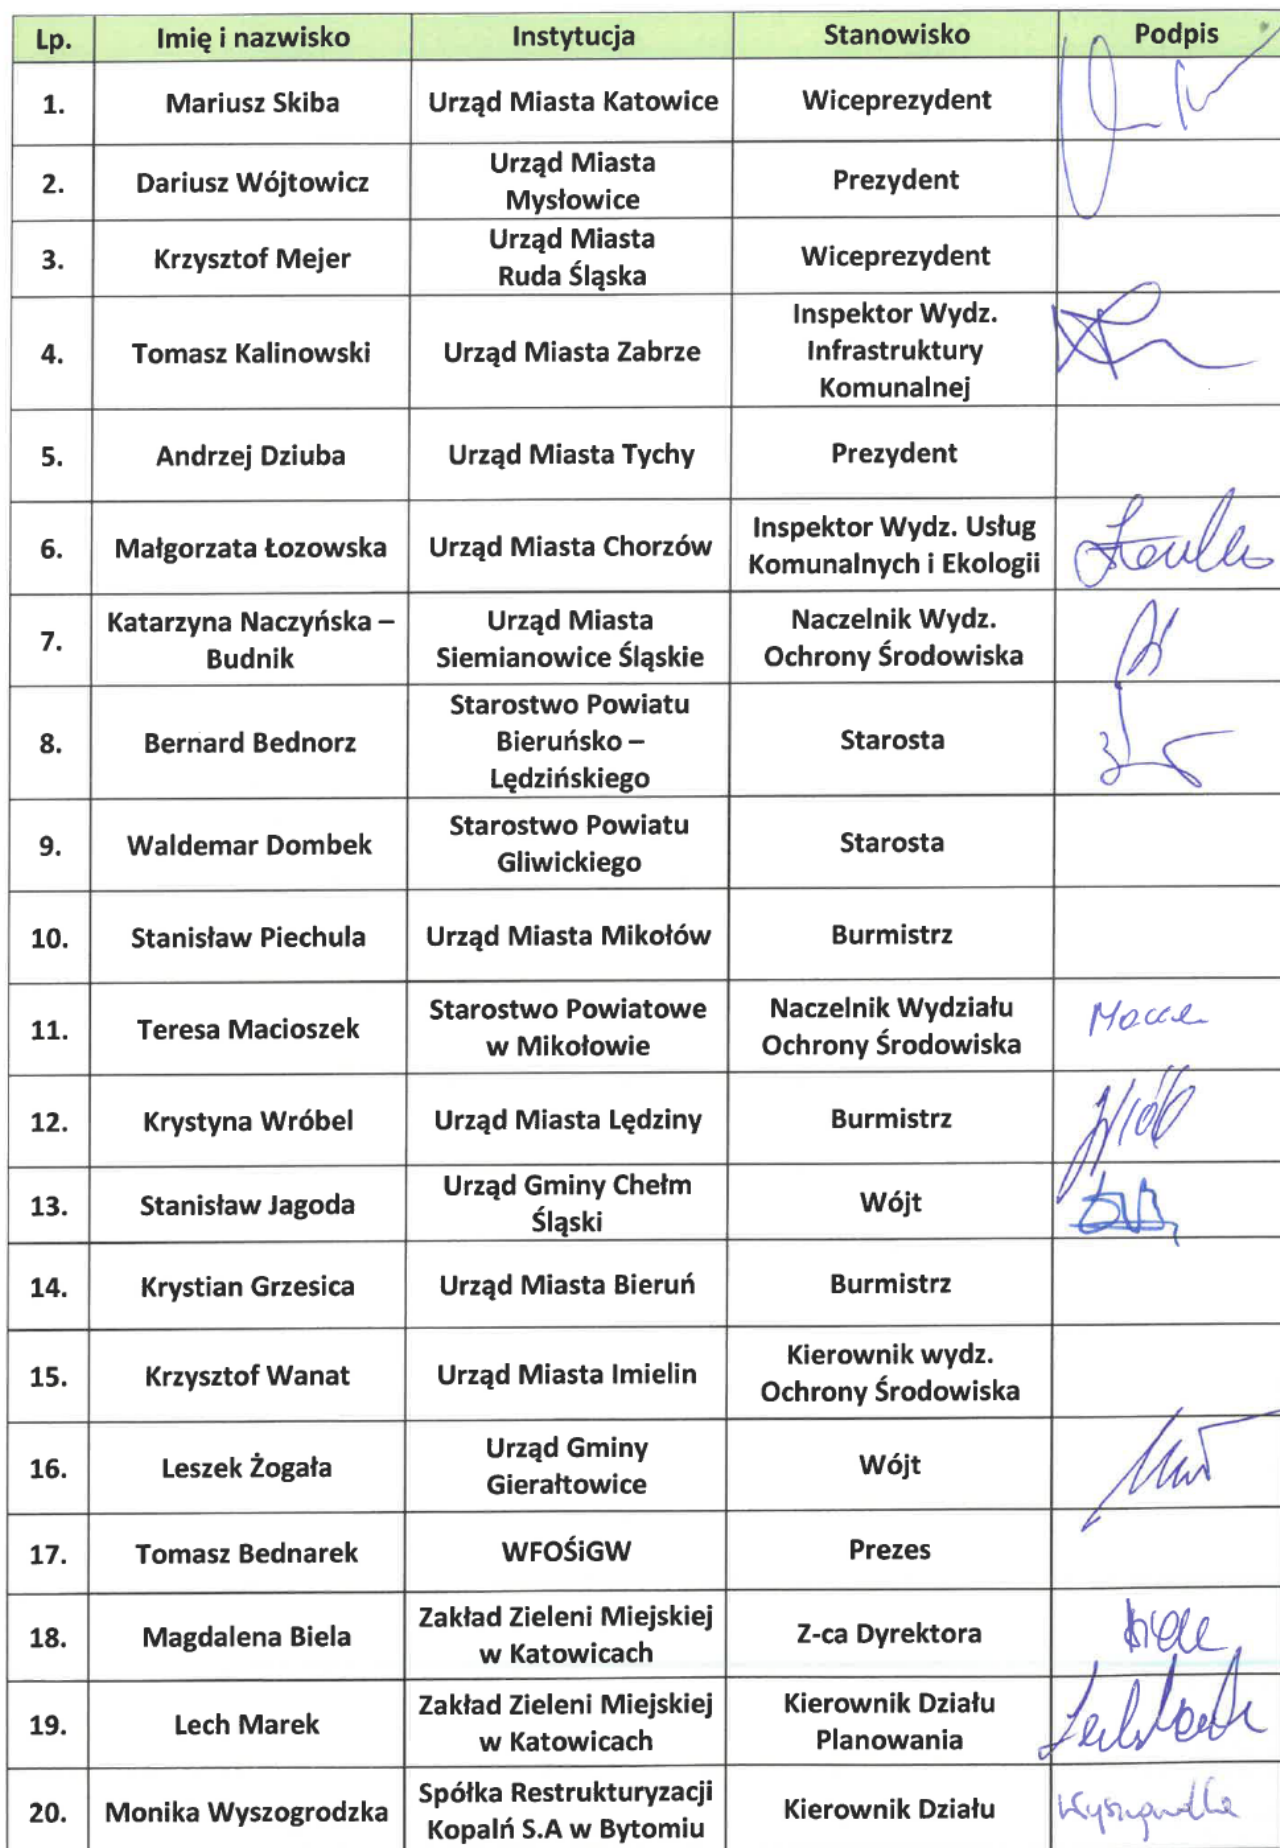 Lp. Imię i nazwisko Instytucja Stanowisko Podpis
1. Mariusz Skiba Urząd Miasta Katowice Wiceprezydent
2. Dariusz Wójtowicz Urząd Miasta
Mysłowice Prezydent
3. Krzysztof Mejer Urząd Miasta
Ruda Śląska Wiceprezydent
4. Tomasz Kalinowski Urząd Miasta Zabrze Inspektor Wydz.
Infrastruktury
Komunalnej
5. Andrzej Dziuba Urząd Miasta Tychy Prezydent
6. Małgorzata Łozowska Urząd Miasta Chorzów Inspektor Wydz. Usług
Komunalnych i Ekologii
7. Katarzyna Naczyńska –
Budnik Urząd Miasta
Siemianowice Śląskie Naczelnik Wydz.
Ochrony Środowiska
8. Bernard Bednorz Starostwo Powiatu
Bieruńsko –
Lędzińskiego Starosta
9. Waldemar Dombek Starostwo Powiatu
Gliwickiego Starosta
10. Stanisław Piechula Urząd Miasta Mikołów Burmistrz
11. Teresa Macioszek Starostwo Powiatowe
w Mikołowie Naczelnik Wydziału
Ochrony Środowiska
12. Krystyna Wróbel Urząd Miasta Lędziny Burmistrz
13. Stanisław Jagoda Urząd Gminy Chełm
Śląski Wójt
14. Krystian Grzesica Urząd Miasta Bieruń Burmistrz
15. Krzysztof Wanat Urząd Miasta Imielin Kierownik wydz.
Ochrony Środowiska
16. Leszek Żogała Urząd Gminy
Gierałtowice Wójt
17. Tomasz Bednarek WFOŚiGW Prezes
18. Magdalena Biela Zakład Zieleni Miejskiej
w Katowicach Z-ca Dyrektora
19. Lech Marek Zakład Zieleni Miejskiej
w Katowicach Kierownik Działu
Planowania
20. Monika Wyszogrodzka Spółka Restrukturyzacji
Kopalń S.A w Bytomiu Kierownik Działu